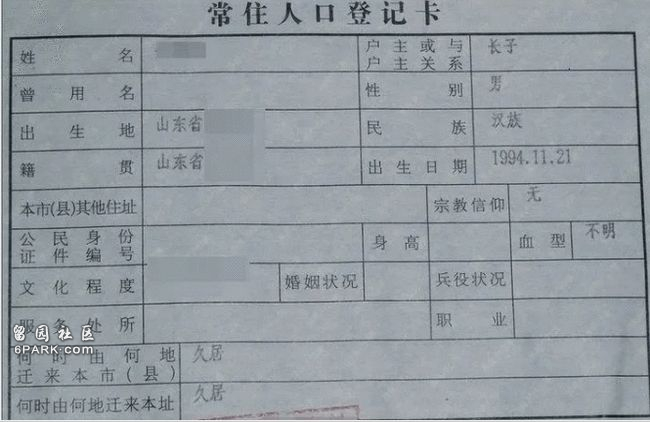 常住人口登记卡
姓名
户主或与户主关系 长子
曾用名
性别 男
出生地 山东省
民族 汉族
籍贯 山东省
出生日期 1994.11.21
本市(县)其他住址
宗教信仰 无
公民身份证件编号
身高
血型 不明
文化程度
婚姻状况
兵役状况
服务处所
职业
何时由何地迁来本市(县) 久居
何时由何地迁来本址 久居
留园社区
6PARK.COM